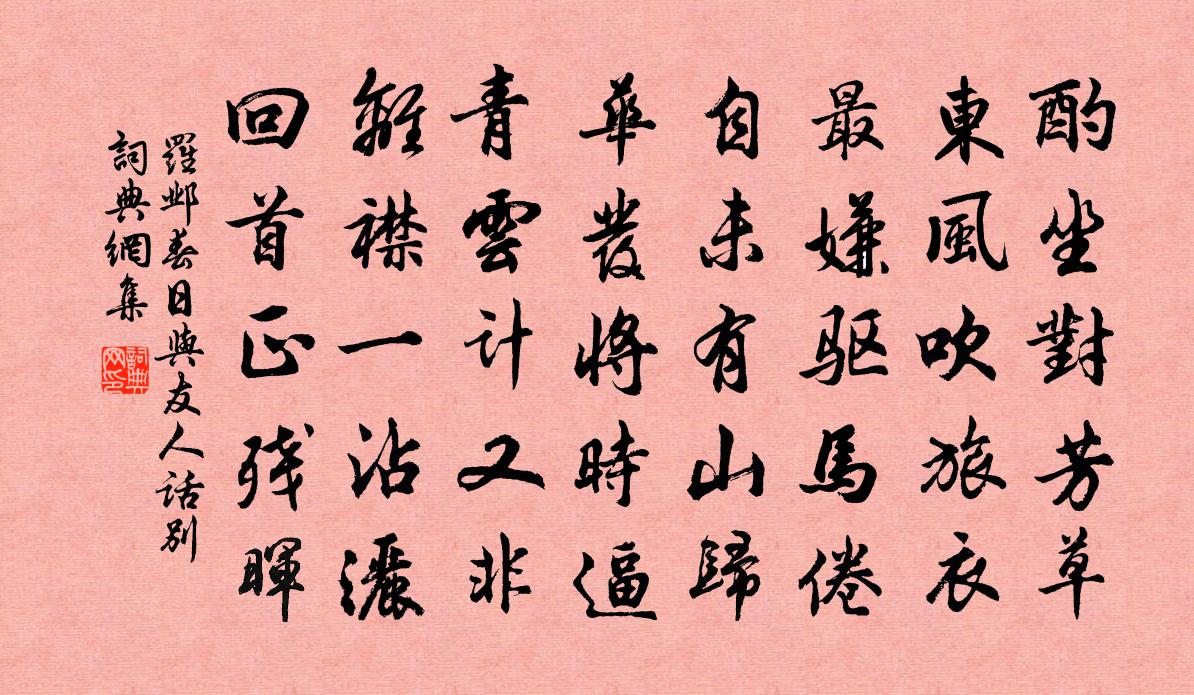 酌坐對芳草
東風吹旅衣
最嫌驅馬倦
自未有山歸
華發將時逼
青雲計又非
離襟一沾灑
回首正殘暉
羅鄴春日與友人話別
詞典網集
詞典网印